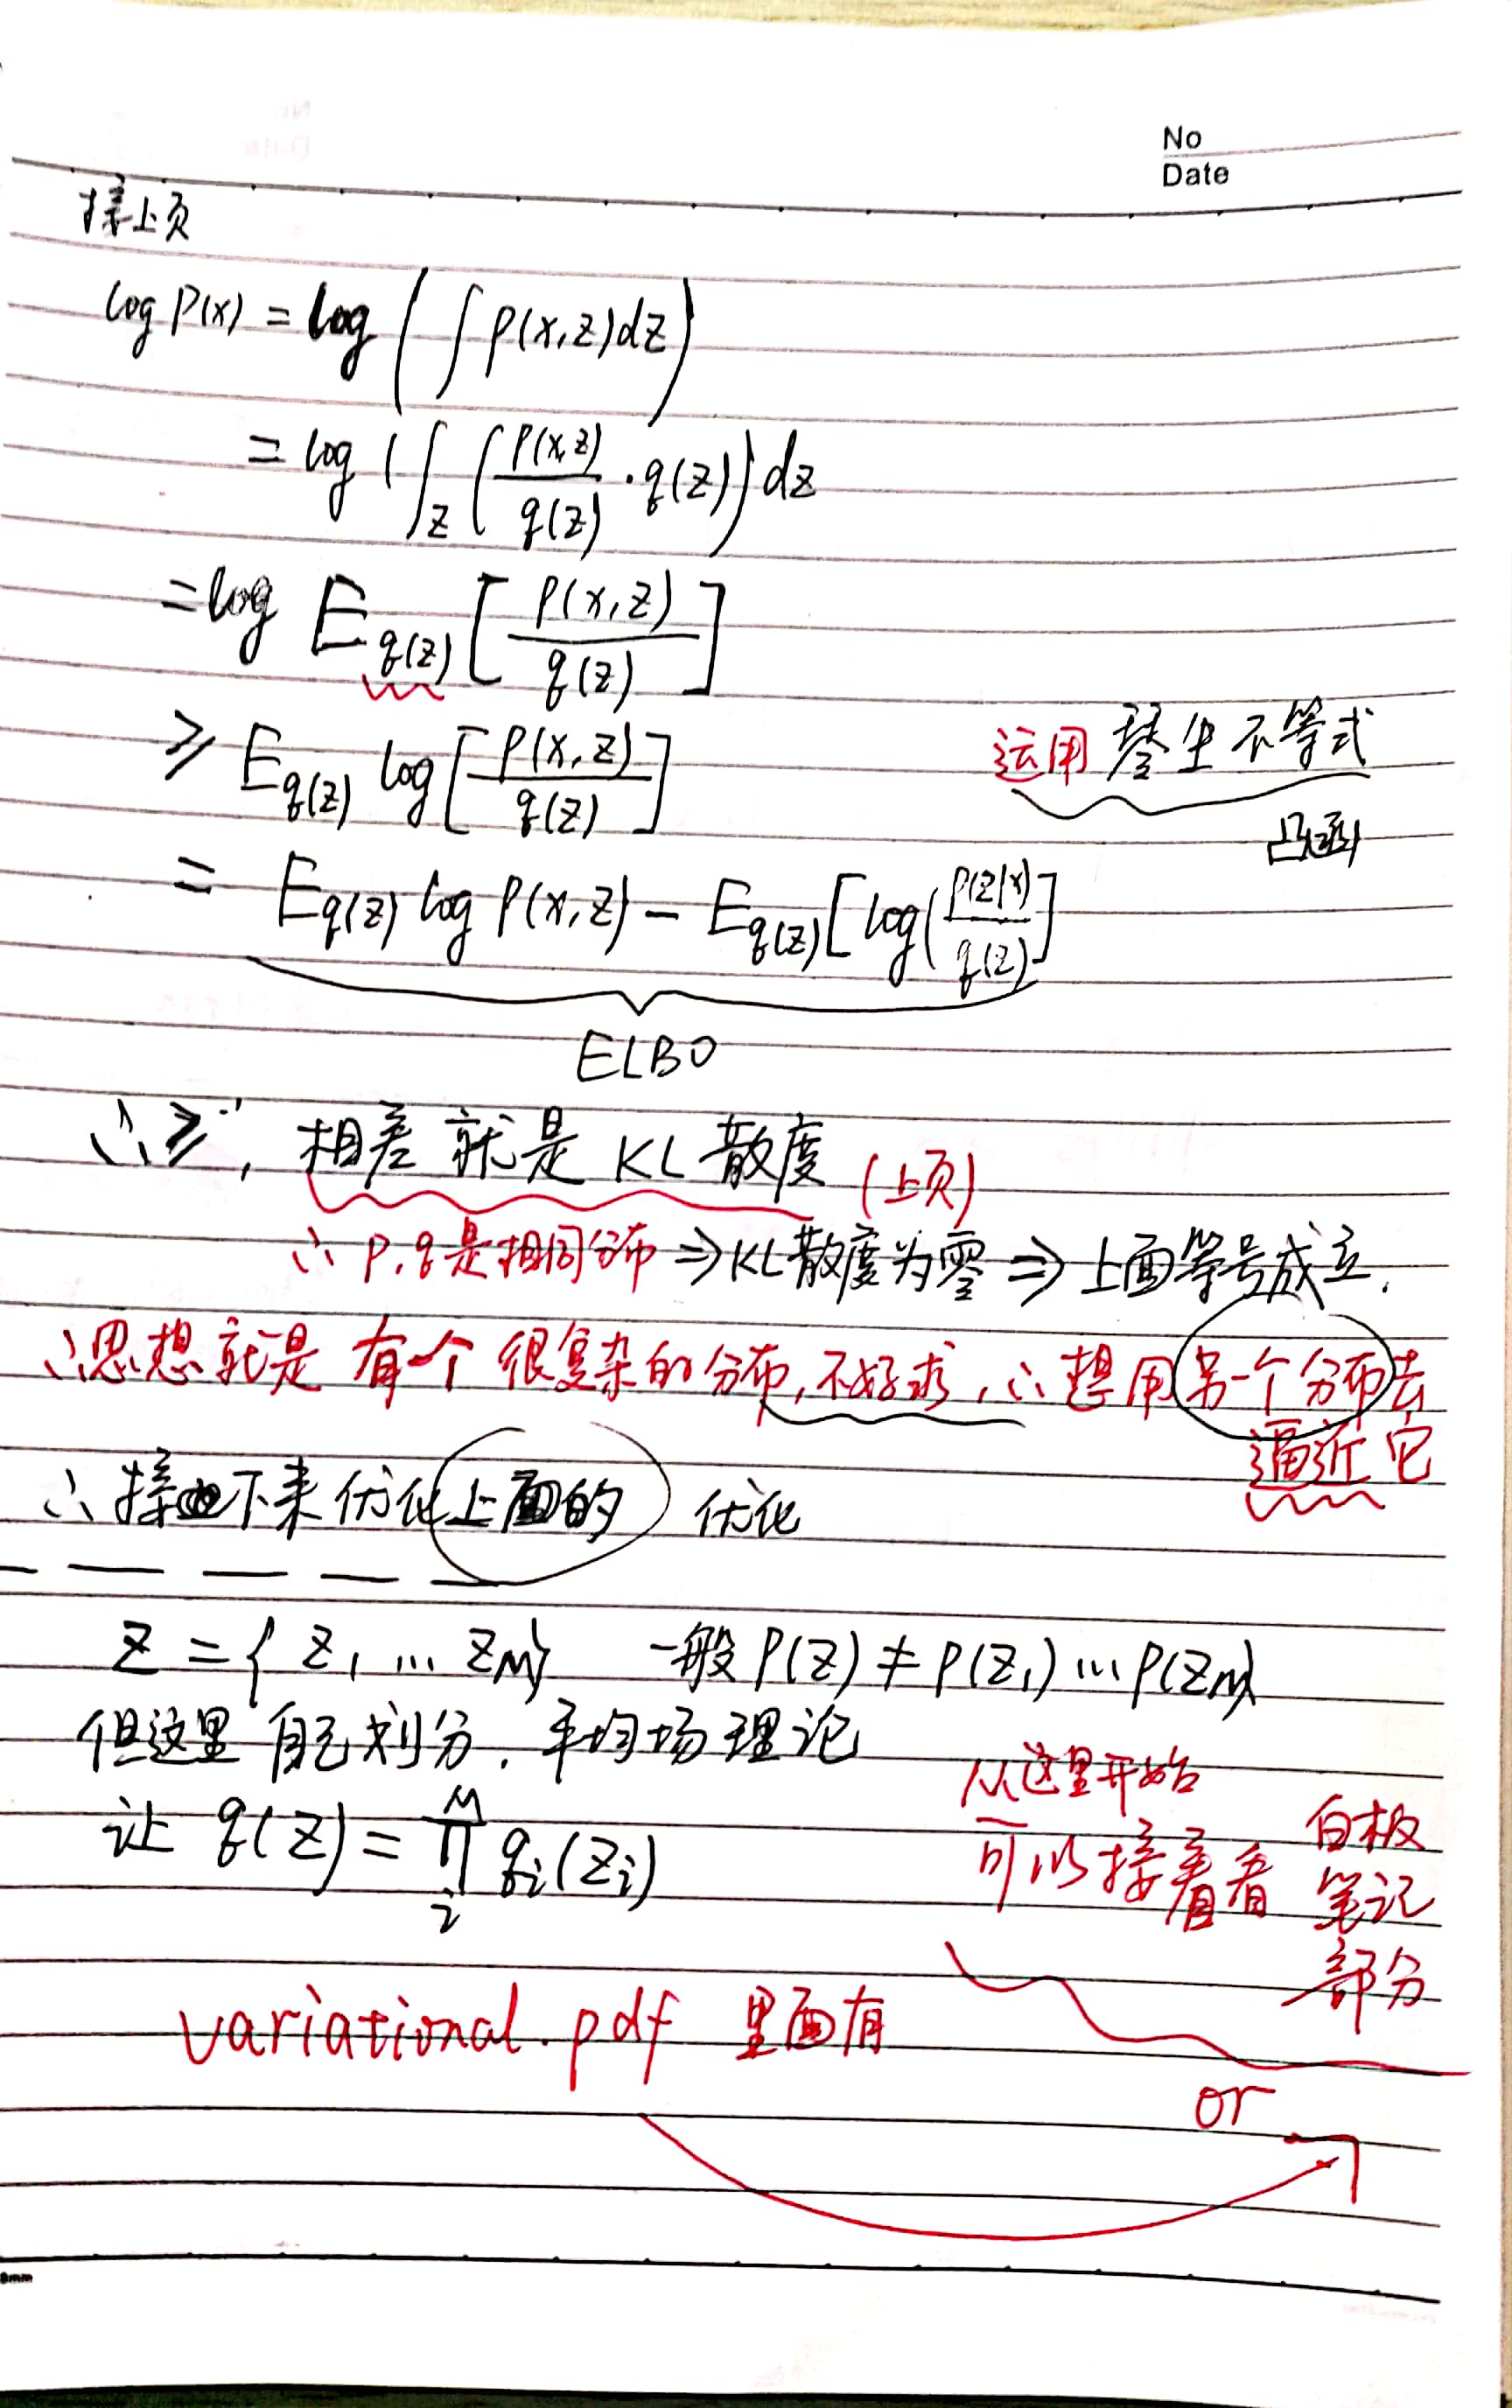 No
Date
接上页
log P(x) = log ( ∫ p(x,z)dz )
= log ( ∫_z ( p(x,z)/q(z) · q(z) ) dz
= log E_q(z) [ p(x,z)/q(z) ]
≥ E_q(z) log [ p(x,z)/q(z) ]
运用 琴生不等式
凸函
= E_q(z) log p(x,z) − E_q(z) [ log( p(z|x)/q(z) ]
ELBO
∴ "≥", 相差 就是 KL 散度 (上页)
∴ p,q是相同分布 ⇒ KL散度为零 ⇒ 上面等号成立.
∴思想就是 有一个 很复杂的分布,不好求,∴ 想用另一个分布去
逼近它
∴ 接下来优化上面的 优化
z = { z₁ ... z_M} 一般 p(z) ≠ p(z₁) ... p(z_M)
但这里 自己划分. 平均场理论
让 q(z) = ∏_i^M q_i(z_i)
从这里开始
可以接着看 白板
笔记
部分
variational.pdf 里面有
or
8mm